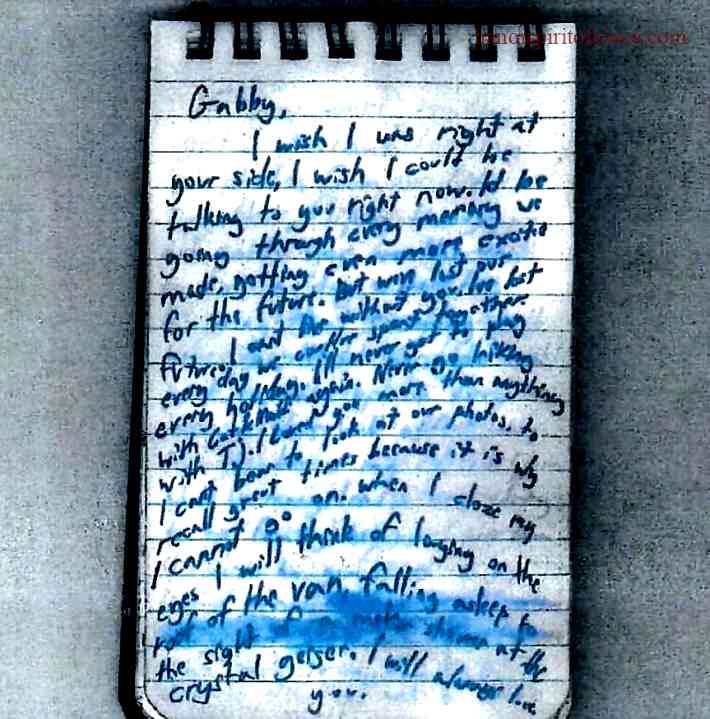 Gabby,
I wish I was right at
your side, I wish I could be
talking to you right now. Id be
going through every memory we
made, getting even more excited
for the future. But we lost our
future. I cant live without you. Ive lost
every day we could've spent together.
every holiday. I'll never get to play
with again. Never go hiking
with TJ. I loved you more than anything
I cant bear to look at our photos, to
recall great times because it is why
I cannot go on. when I close my
eyes I will think of laughing on the
roof of the van, falling asleep to
the sight of a shower at the
crystal geiser. I will always love
you.